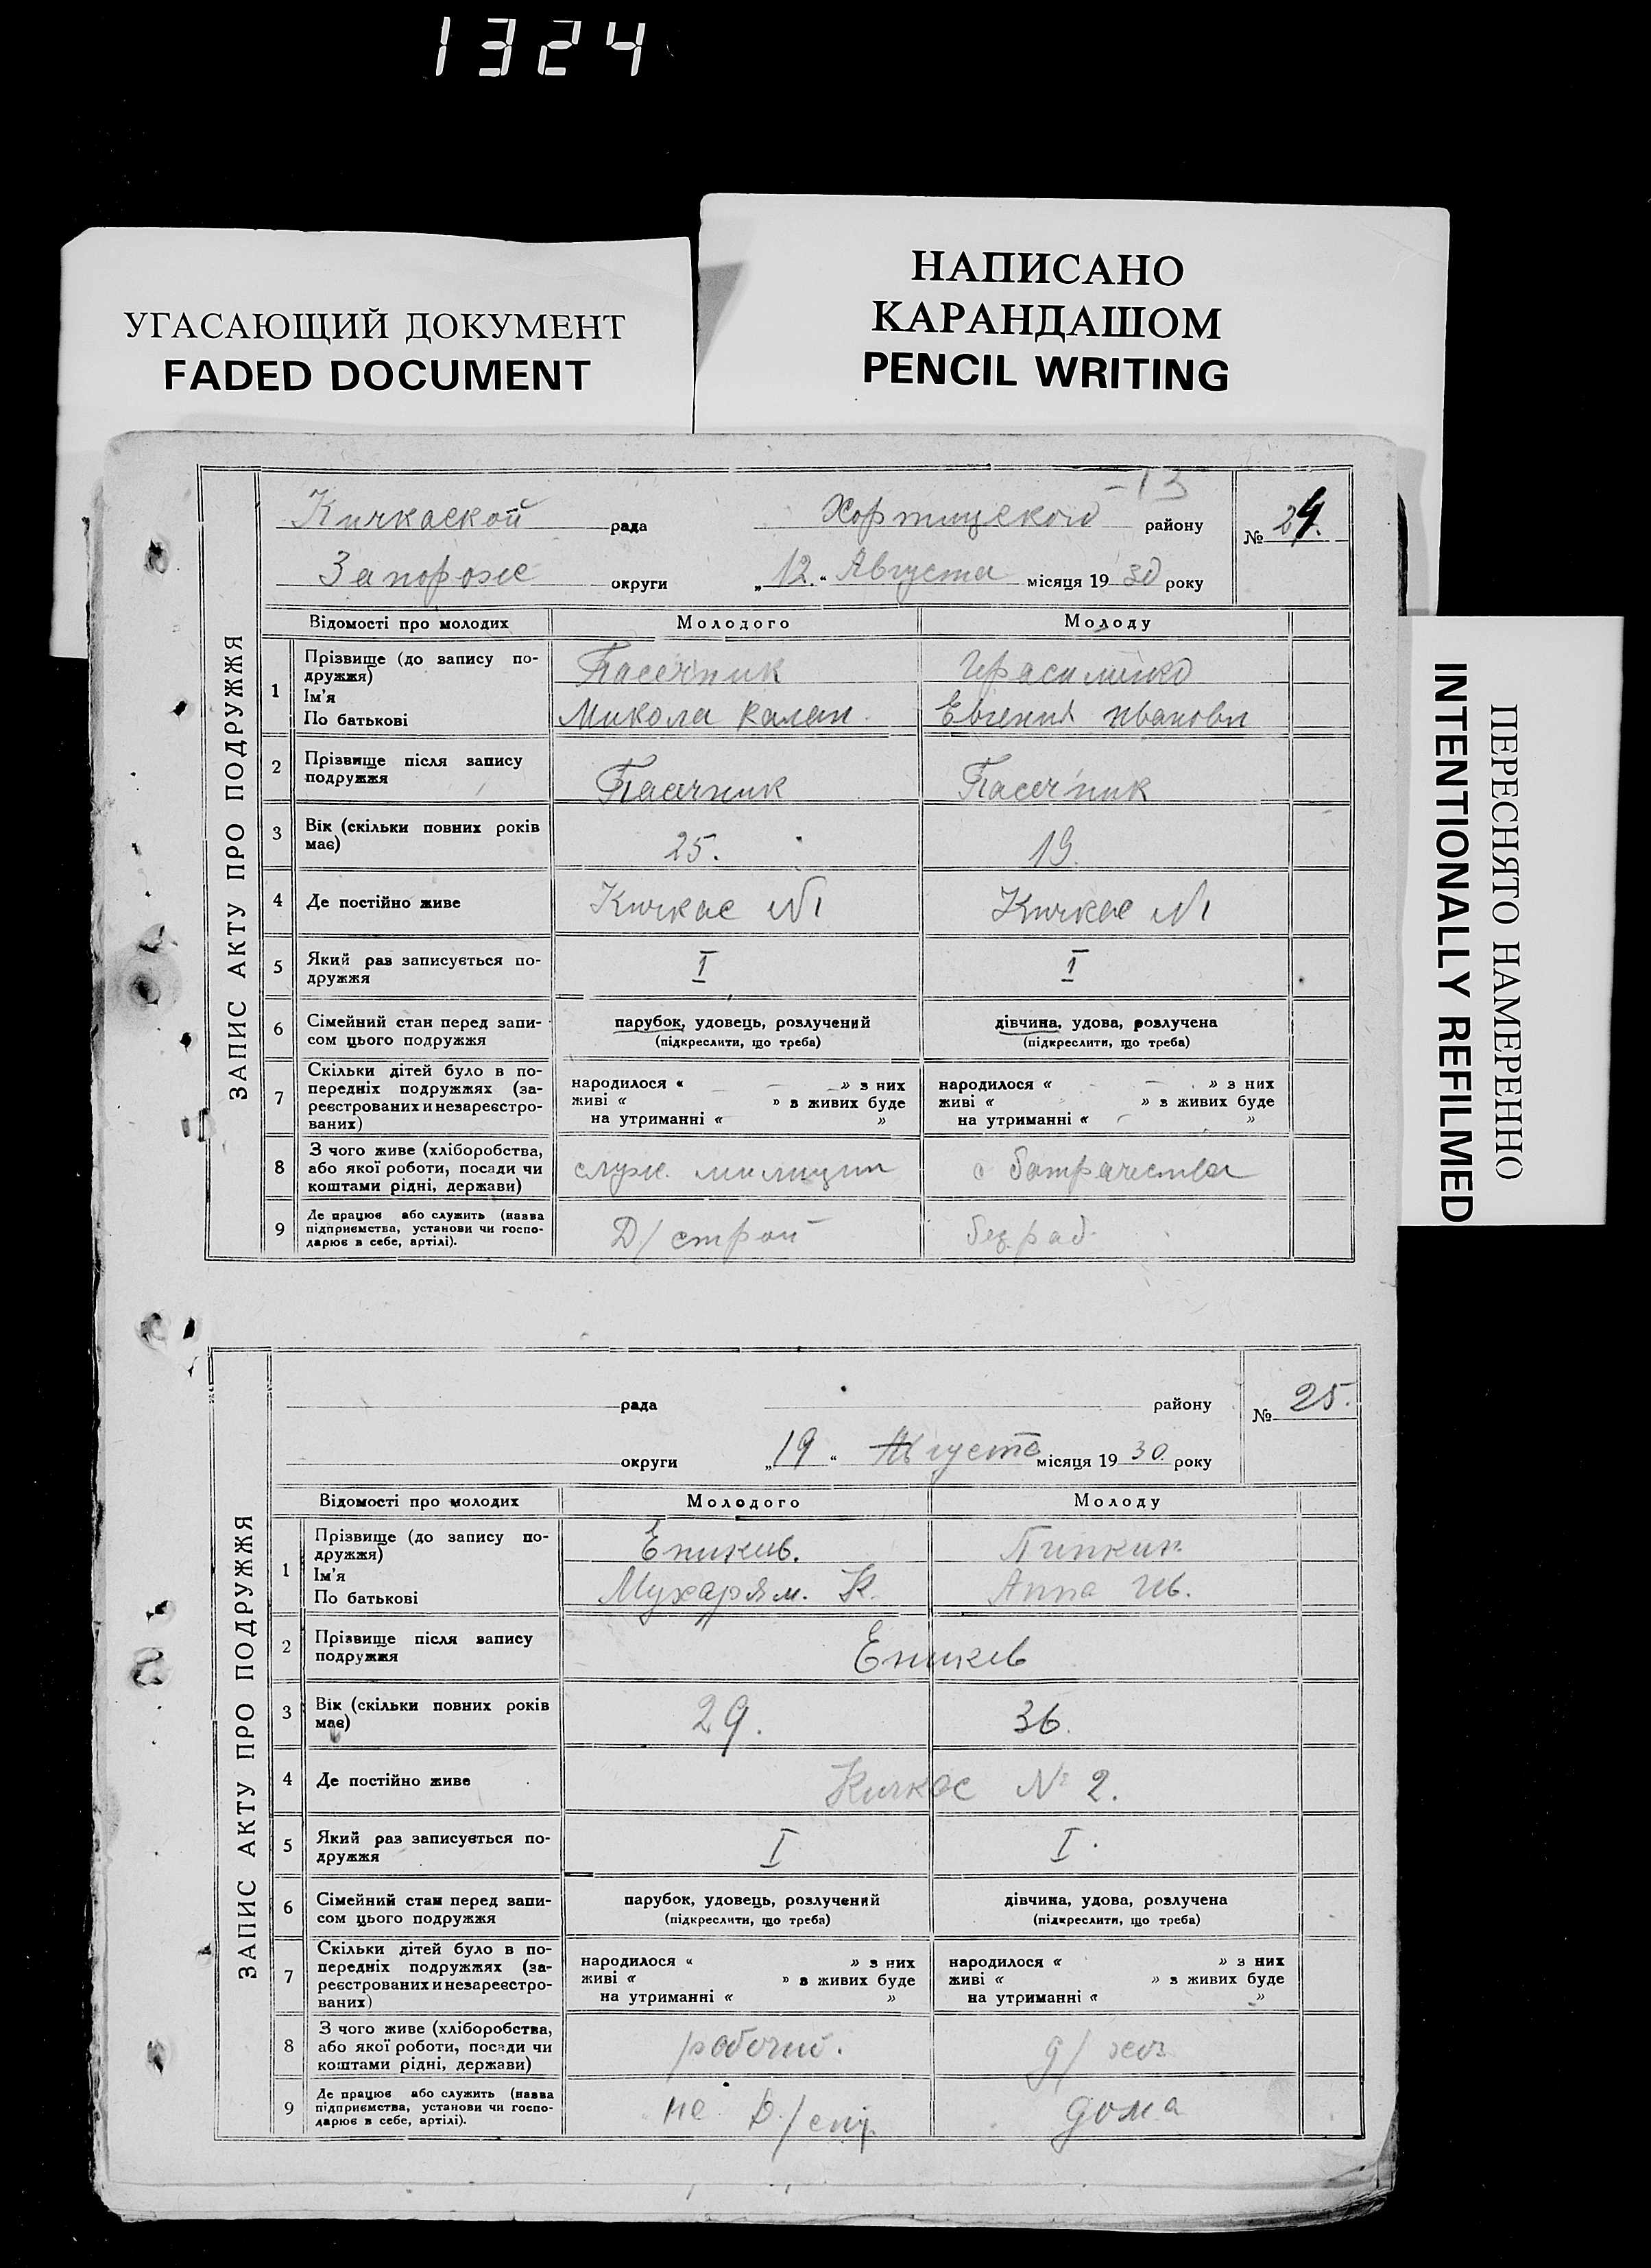 1324
УГАСАЮЩИЙ ДОКУМЕНТ
FADED DOCUMENT
НАПИСАНО
КАРАНДАШОМ
PENCIL WRITING
ПЕРЕСНЯТО НАМЕРЕННО
INTENTIONALLY REFILMED
ЗАПИС АКТУ ПРО ПОДРУЖЖЯ
-13
Кичкаской рада Хортицского району № 24.
Запорож округи „12.“ Августа місяця 1930 року
Відомості про молодих Молодого Молоду
1 Прізвище (до запису по-
дружжя) Пасечник Герасименко
Ім'я
По батькові Микола Кален. Евгения Ивановн
2 Прізвище після запису
подружжя Пасечник Пасечник
3 Вік (скільки повних років
має) 25. 19.
4 Де постійно живе Кичкас №1 Кичкас №1
5 Який раз записується по-
дружжя I I
6 Сімейний стан перед запи-
сом цього подружжя
парубок, удовець, розлучений дівчина, удова, розлучена
(підкреслити, що треба) (підкреслити, що треба)
7 Скільки дітей було в по-
передніх подружжях (за-
реєстрованих и незареєстро-
ваних)
народилося « — » з них народилося « — » з них
живі « » в живих буде живі « » з живих буде
на утриманні « » на утриманні « »
8 З чого живе (хліборобства,
або якої роботи, посади чи
коштами рідні, держави) служ. милиции с батрачества
9 Де працює або служить (назва
підприємства, установи чи госпо-
дарює в себе, артілі). Д/строй без. раб.
ЗАПИС АКТУ ПРО ПОДРУЖЖЯ
рада району № 25.
округи „19“ Августа місяця 1930. року
Відомості про молодих Молодого Молоду
1 Прізвище (до запису по-
дружжя) Еникев. Пипкин
Ім'я
По батькові Мухарям. К. Анна Ив.
2 Прізвище після запису
подружжя Еникев
3 Вік (скільки повних років
має) 29. 36.
4 Де постійно живе Кичкас № 2.
5 Який раз записується по-
дружжя I I.
6 Сімейний стан перед запи-
сом цього подружжя
парубок, удовець, розлучений дівчина, удова, розлучена
(підкреслити, що треба) (підкреслити, що треба)
7 Скільки дітей було в по-
передніх подружжях (за-
реєстрованих и незареєстро-
ваних)
народилося « » з них народилося « » з них
живі « » в живих буде живі « » з живих буде
на утриманні « » на утриманні « »
8 З чого живе (хліборобства,
або якої роботи, посади чи
коштами рідні, держави) рабочий. д/хоз
9 Де працює або служить (назва
підприємства, установи чи госпо-
дарює в себе, артілі). на Д/стр. дома